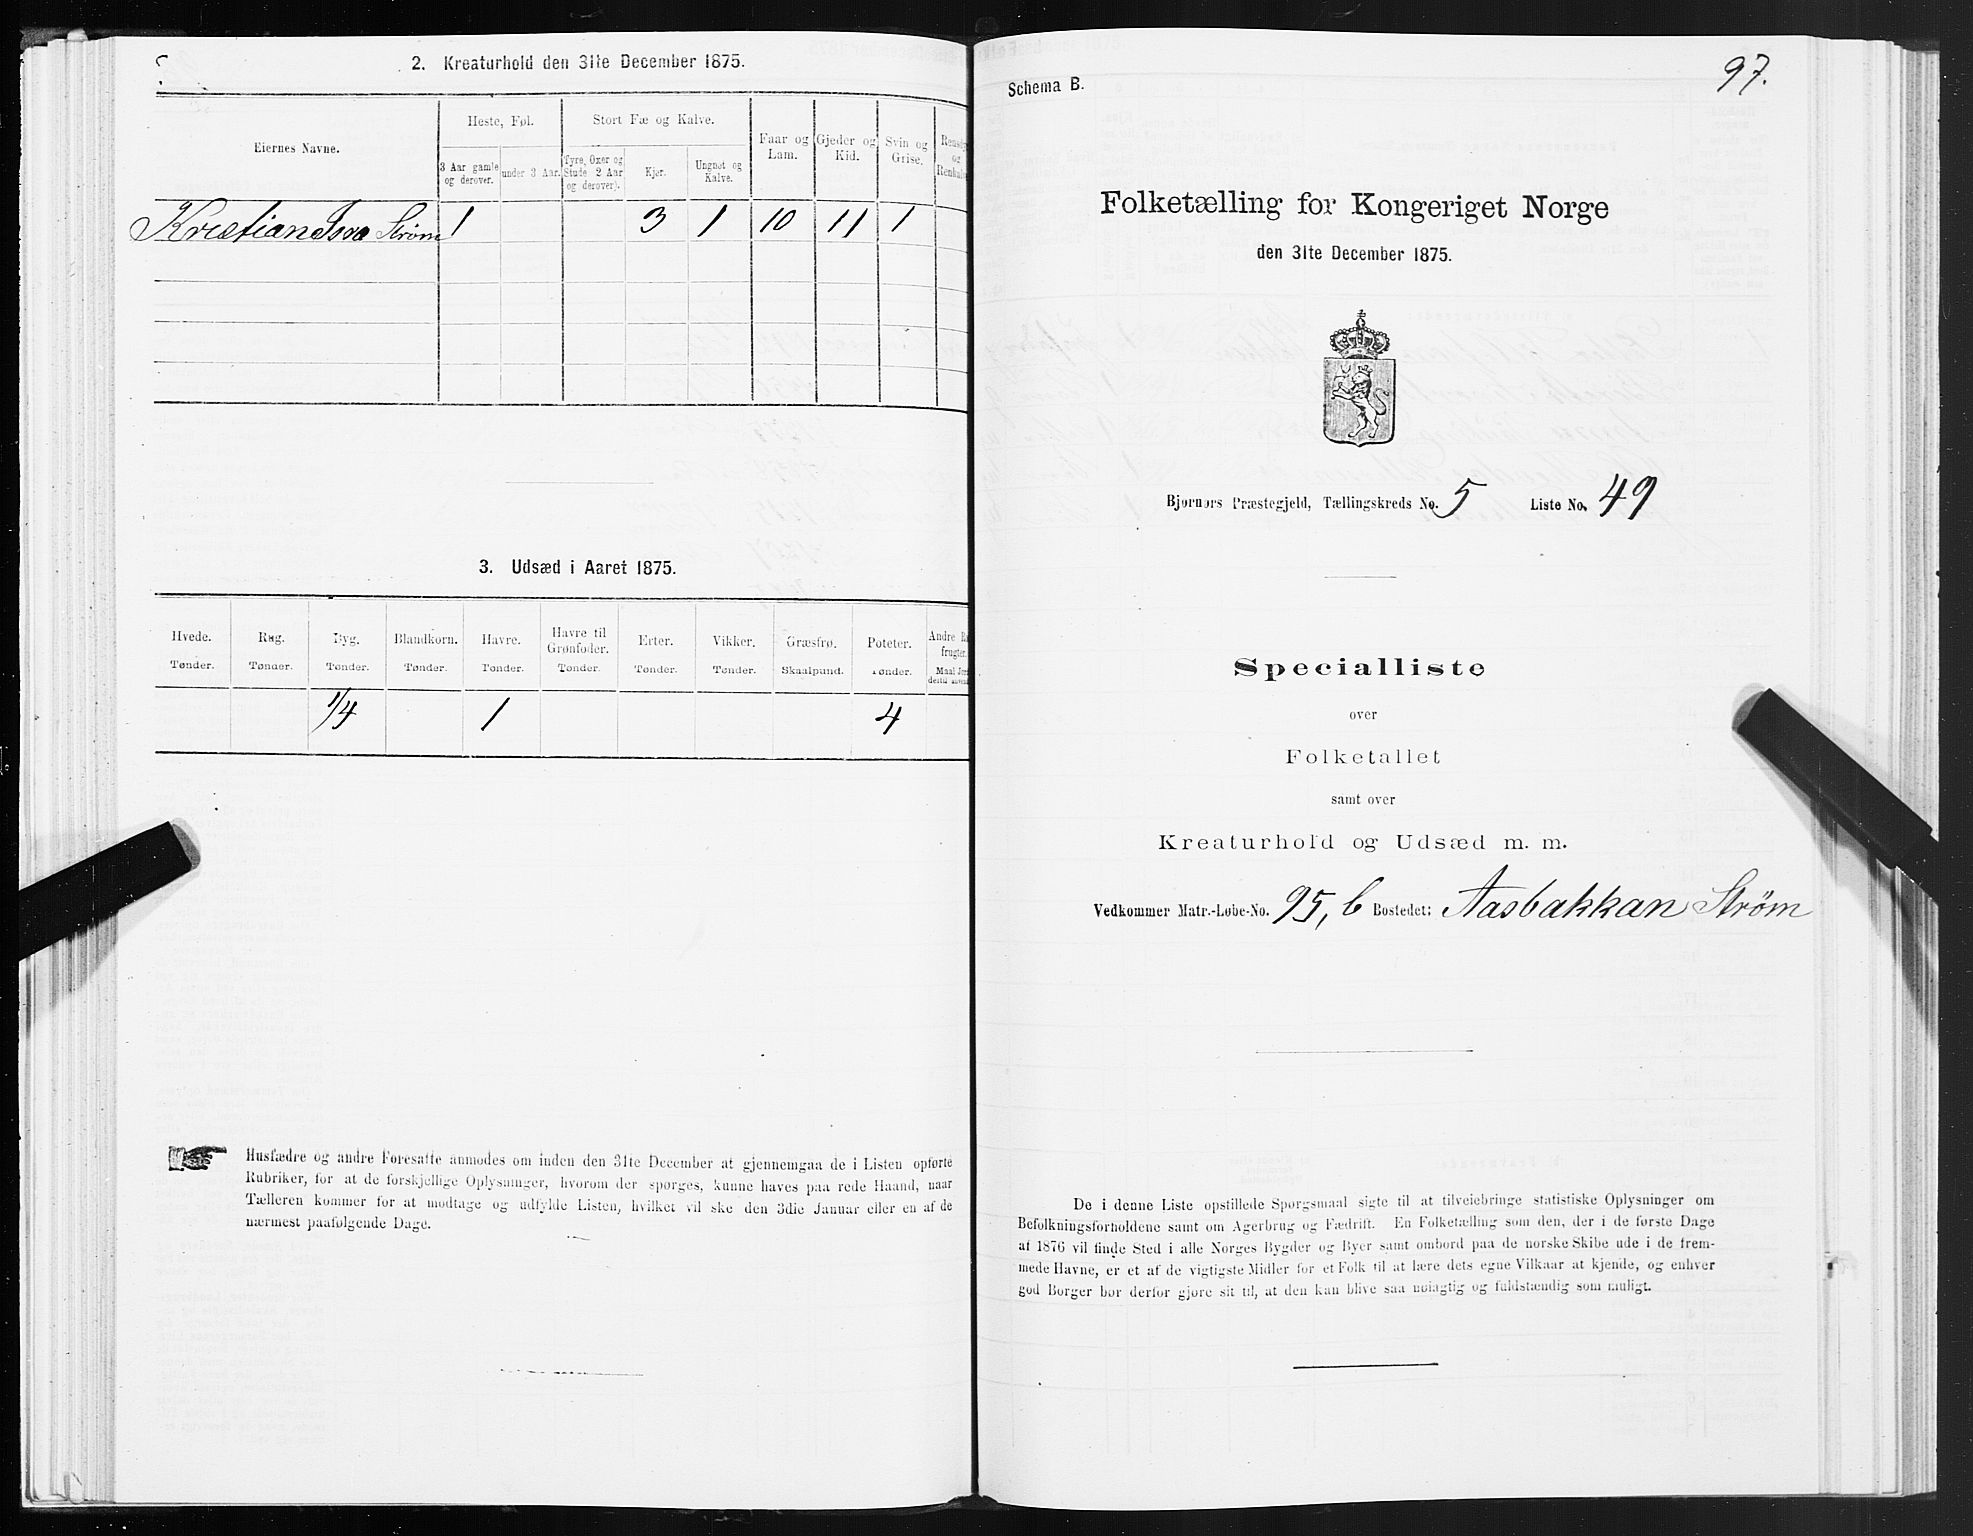 2. Kreaturhold den 31te December 1875.
Eiernes Navne.
Heste, Føl.
Stort Fæ og Kalve.
Faar og Lam.
Gjeder og Kid.
Svin og Grise.
3 Aar gamle og derover.
under 3 Aar.
Tyre, Oxer og Stude 2 Aar og derover).
Kjør.
Ungnøt og Kalve.
Kristian Strøm 1 3 1 10 11 1
3. Udsæd i Aaret 1875.
Hvede. Rug. Byg. Blandkorn. Havre. Havre til Grønfoder. Erter. Vikker. Græsfrø. Poteter.
Tønder. Tønder. Tønder. Tønder. Tønder. Tønder. Tønder. Tønder. Skaalpund. Tønder.
1/4 1 4
Husfædre og andre Foresatte anmodes om inden den 31te December at gjennemgaa de i Listen opførte
Rubriker, for at de forskjellige Oplysninger, hvorom der spørges, kunne haves paa rede Haand, naar
Tælleren kommer for at modtage og udfylde Listen, hvilket vil ske den 3die Januar eller en af de
nærmest paafølgende Dage.
97.
Schema B.
Folketælling for Kongeriget Norge
den 31te December 1875.
Bjørnørs Præstegjeld, Tællingskreds No. 5 Liste No. 49
Specialliste
over
Folketallet
samt over
Kreaturhold og Udsæd m. m.
Vedkommer Matr.-Løbe-No. 95, b Bostedet: Aasbakkan Strøm
De i denne Liste opstillede Spørgsmaal sigte til at tilveiebringe statistiske Oplysninger om
Befolkningsforholdene samt om Agerbrug og Fædrift. En Folketælling som den, der i de første Dage
af 1876 vil finde Sted i alle Norges Bygder og Byer samt ombord paa de norske Skibe ude i de frem-
mede Havne, er et af de vigtigste Midler for et Folk til at lære dets egne Vilkaar at kjende, og enhver
god Borger bør derfor gjøre sit til, at den kan blive saa nøiagtig og fuldstændig som muligt.